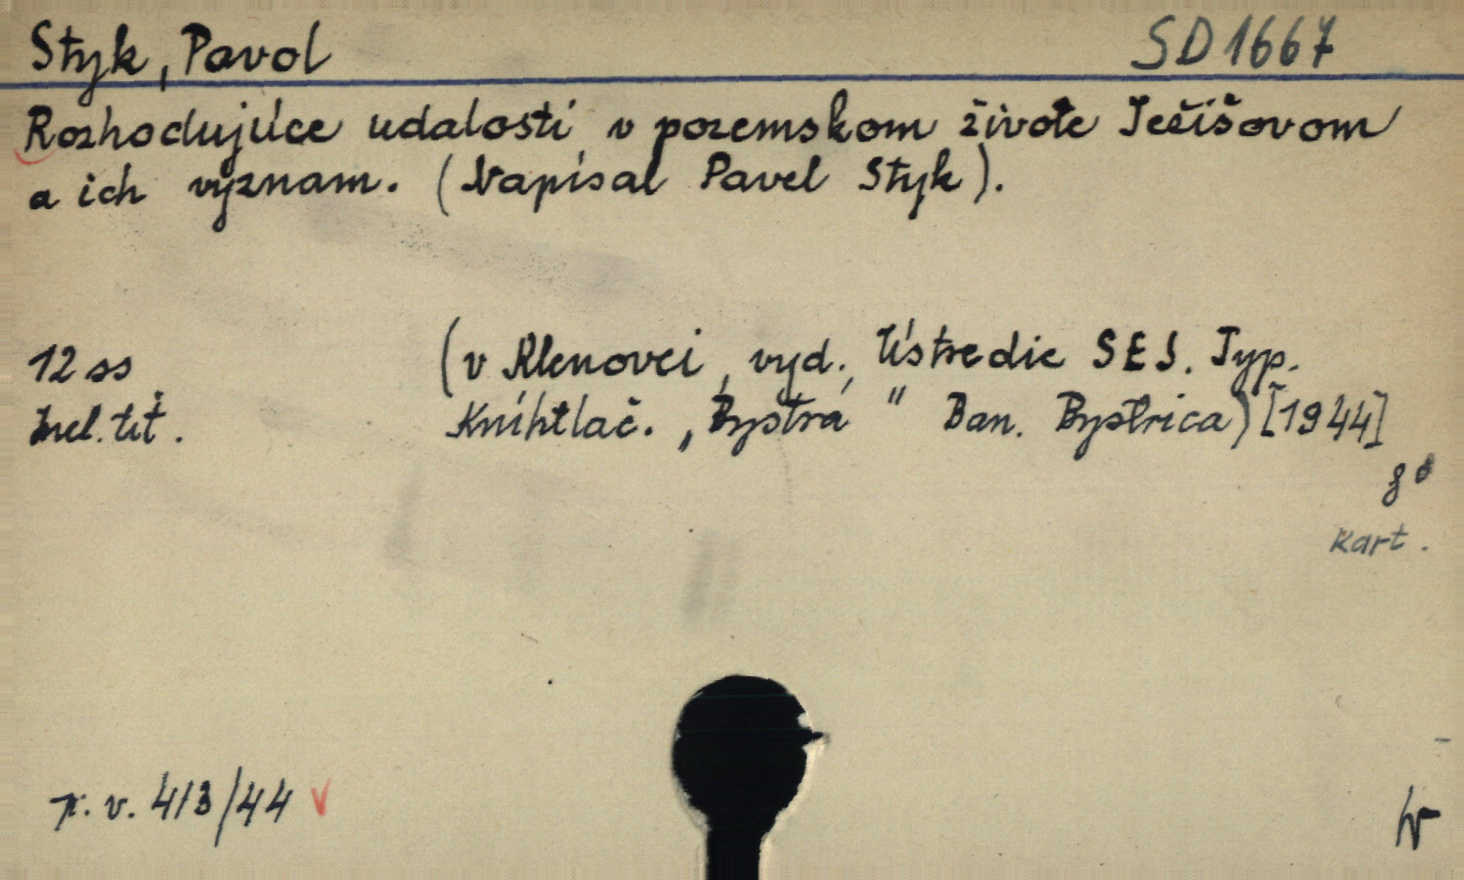 Styk, Pavol SD 1667
Rozhodujúce udalosti v pozemskom živote Ježišovom
a ich význam. (Napísal Pavel Styk).
12 ss (v Klenovci, vyd., Ústredie SES. Typ.
tit. Kníhtlač. „Bystrá" Ban. Bystrica) [1944]
8°
kart.
p. v. 413/44